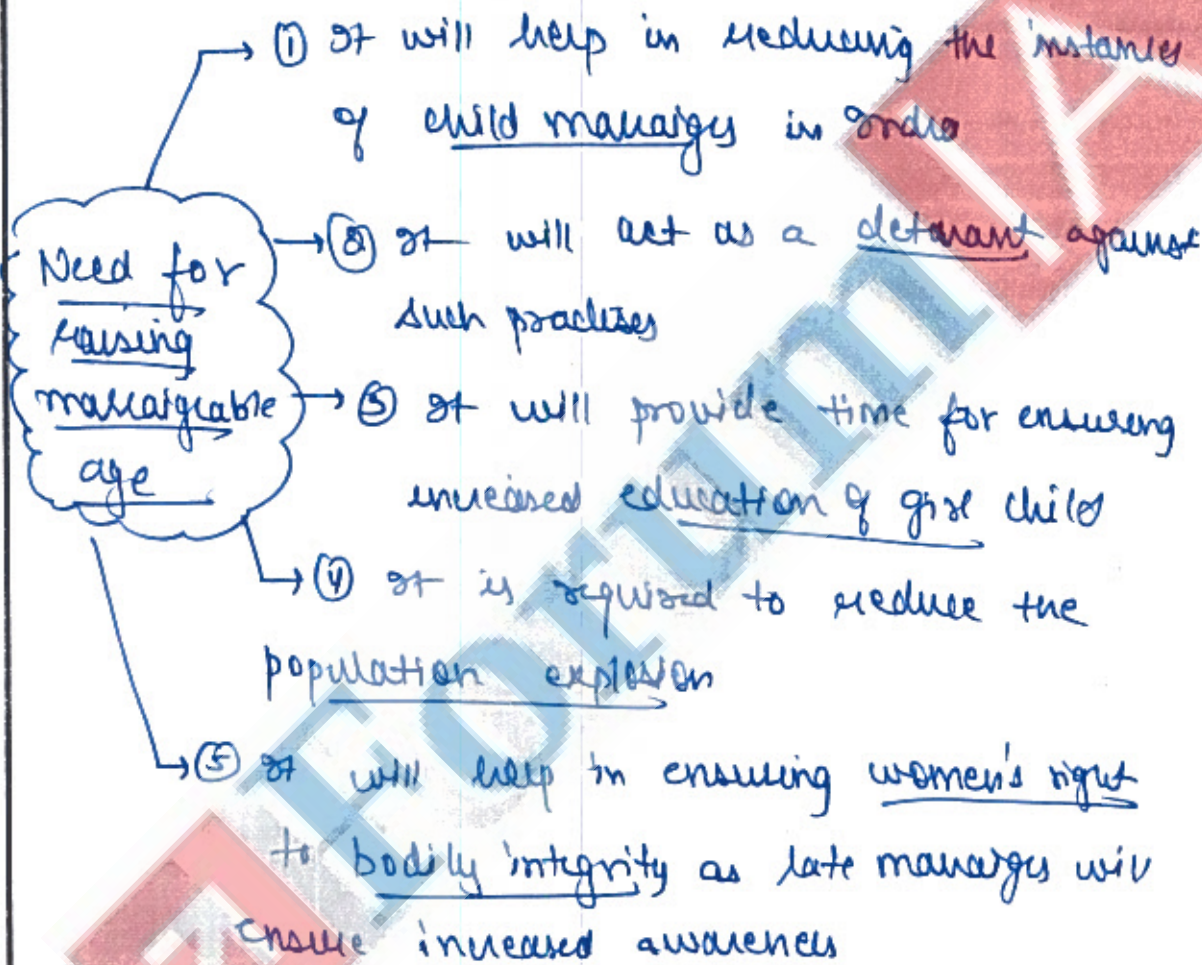 ① It will help in reducing the instances
of child marraiges in India
Need for
raising
marraigeable
age
② It will act as a deterrant against
such practises
③ It will provide time for ensuring
increased education of girl child
④ It is required to reduce the
population explosion
⑤ It will help in ensuring women's right
to bodily integrity as late marraiges will
ensure increased awareness
ForumIA